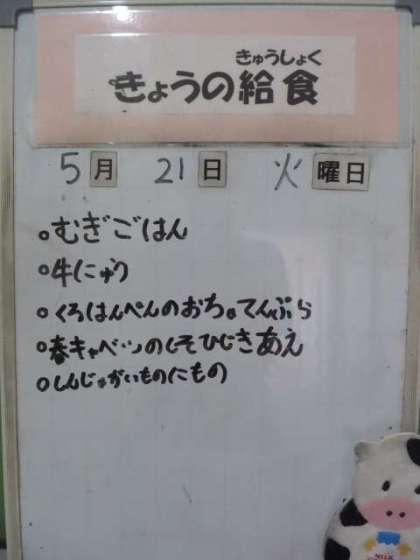 きゅうしょく
きょうの給食
5月 21日 火曜日
○むぎごはん
○牛にゅう
○くろはんぺんのおちゃてんぷら
○春キャベツのしそひじきあえ
○しんじゃがいものにもの
MILK